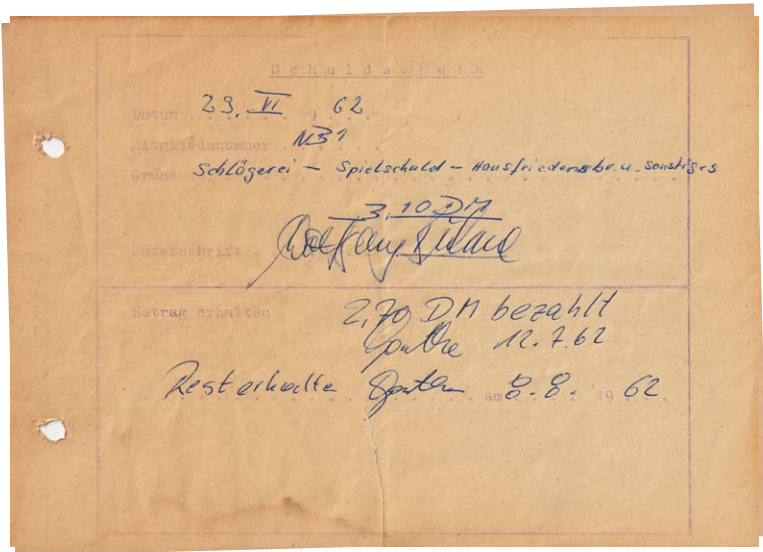 Schuldschein
Datum 29. VI 19 62
Mitgliedsnummer
Grund Schlägerei – Spielschuld – Hausfriedensbr. u. sonstiges
3,10 DM
Unterschrift Wolfgang
Betrag erhalten 2,70 DM bezahlt
12.7.62
Rest erhalten am 8.8. 19 62